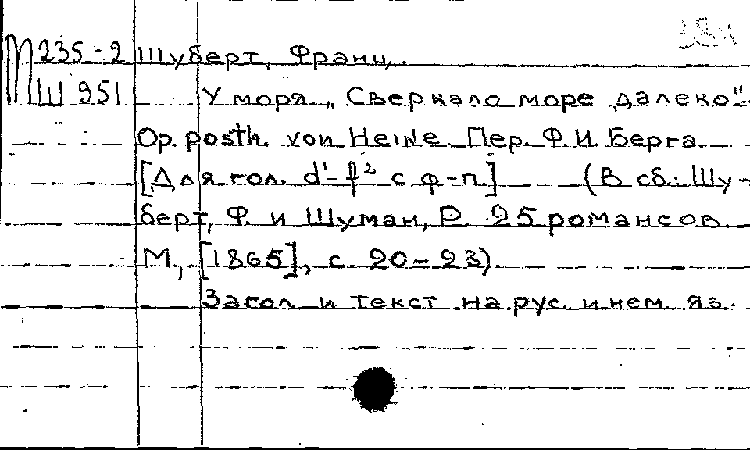 П 235-2 Шуберт, Франц.
Ш 951 У моря „Сверкало море далеко".
Op. posth. von Heine Пер. Ф.И. Берга
[Для гол. d¹-f² с ф-п.] (В сб.: Шу-
берт, Ф. и Шуман, Р. 25 романсов.
М, [1865], с. 20-23)
Загол. и текст на рус. и нем. яз.